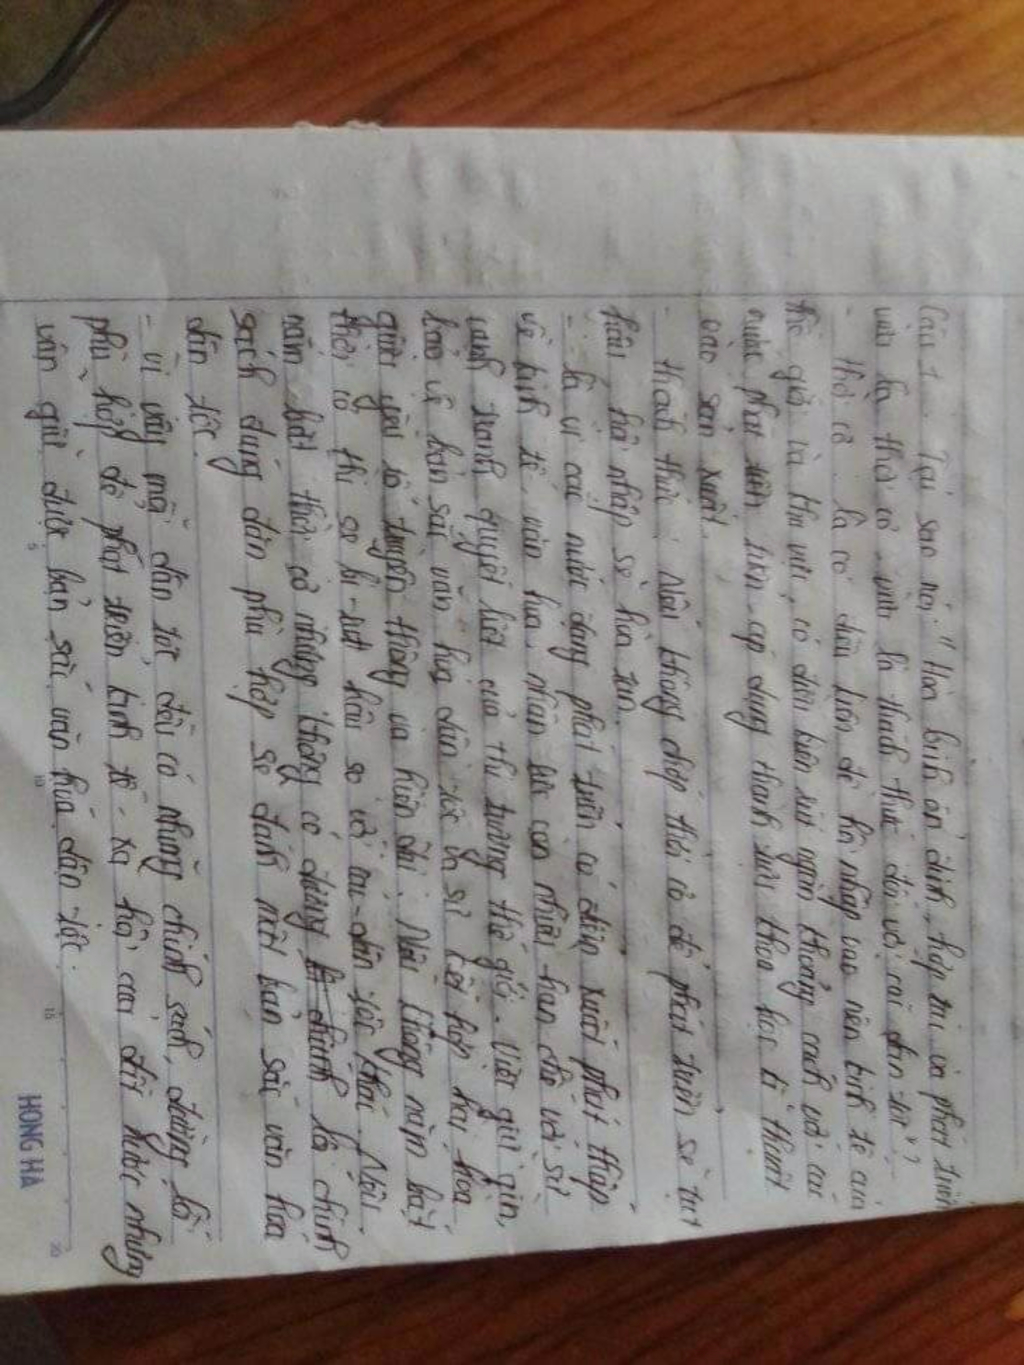 Câu 1. Tại sao nói "Hoà bình ổn định, hợp tác và phát triển
vừa là thời cơ vừa là thách thức đối với các dân tộc"?
- Thời cơ: là có điều kiện để hội nhập vào nền kinh tế của
thế giới và khu vực, có điều kiện rút ngắn khoảng cách với các
nước phát triển, áp dụng thành tựu khoa học kĩ thuật
vào sản xuất.
- Thách thức: Nếu không chớp thời cơ để phát triển sẽ tụt
hậu hội nhập sẽ hòa tan.
- Là vì các nước đang phát triển có điểm xuất phát thấp
về kinh tế, văn hóa, nhân lực còn nhiều hạn chế với sự
cạnh tranh quyết liệt của thị trường thế giới. Việc giữ gìn,
bảo vệ bản sắc văn hóa dân tộc và sự kết hợp hài hòa
giữa yếu tố truyền thống và hiện đại. Nếu không nắm bắt
thời cơ thì sẽ bị tụt hậu so với các dân tộc khác. Nếu
nắm bắt thời cơ nhưng không có đường lối chính
sách đúng đắn phù hợp sẽ đánh mất bản sắc văn hóa
dân tộc.
- Vì vậy mỗi dân tộc đều có những chính sách, đường lối
phù hợp để phát triển kinh tế - xã hội của đất nước nhưng
vẫn giữ được bản sắc văn hóa dân tộc.
5 10 15 20
HONG HA